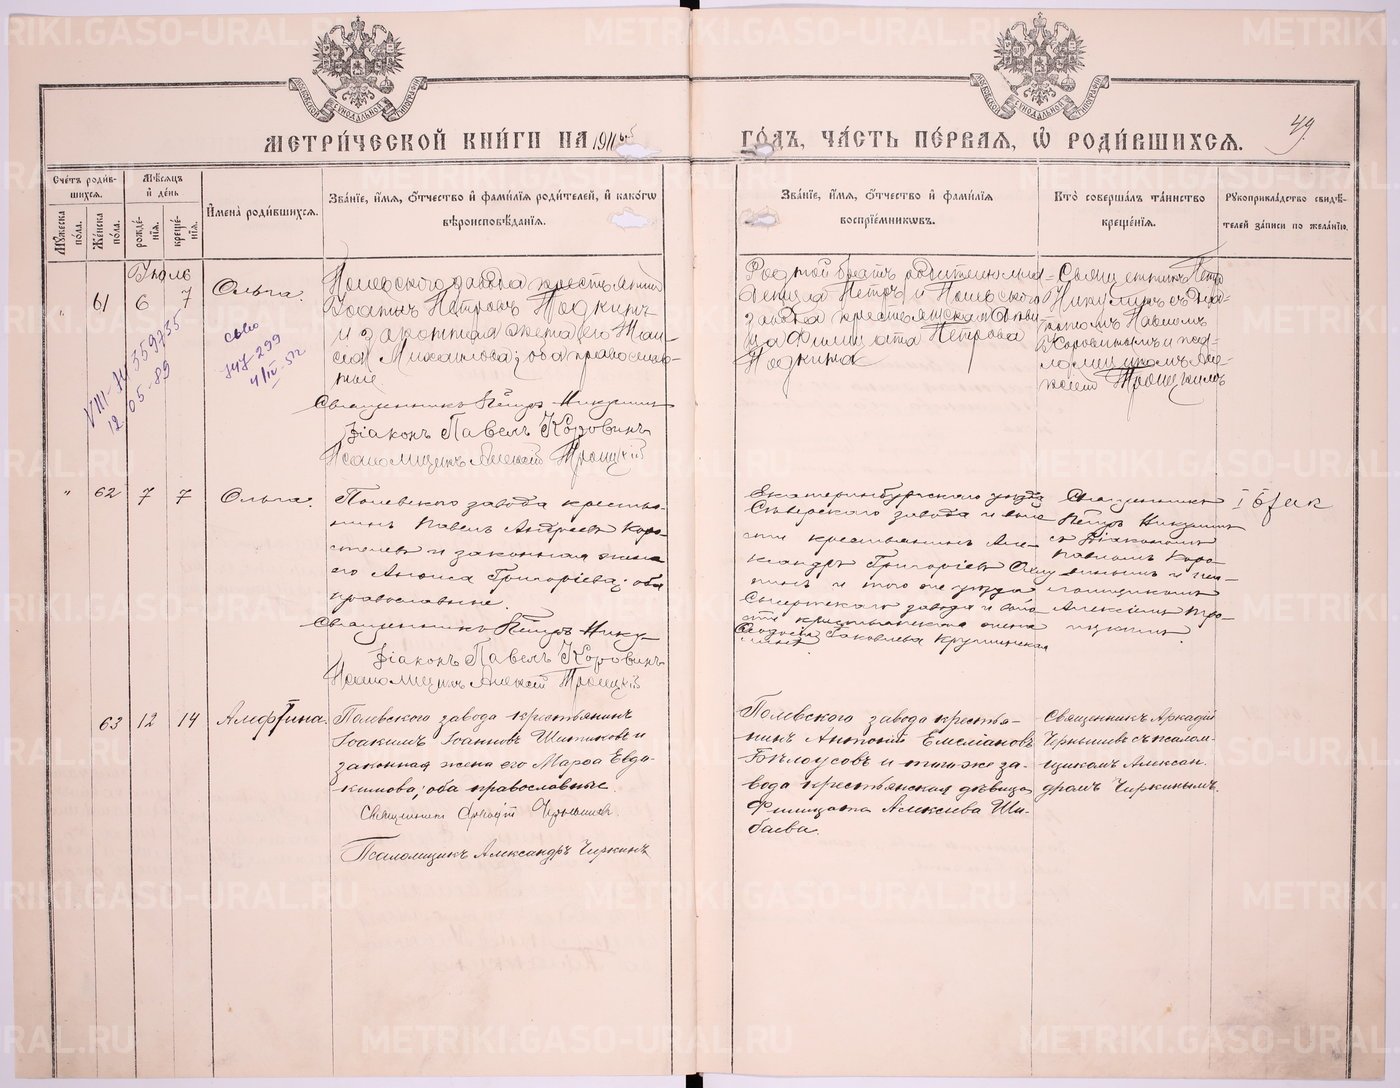 МЕТРИ́ЧЕСКОЙ КНИ́ГИ НА 1911 ГО́ДЪ, ЧА́СТЬ ПЕ́РВАЯ, Ѽ РОДИ́ВШИХСЯ.
49
Сче́тъ роди́вшихся.
Му́жеска по́ла.
Же́нска по́ла.
Мѣ́сяцъ и де́нь
рожде́нія.
креще́нія.
Имена̀ роди́вшихся.
Зва́ніе, и́мя, ѻ́тчество и фами́лія роди́телей, и како́гѡ
вѣроисповѣ́данія.
Зва́ніе, и́мя, ѻ́тчество и фами́лія
воспріе́мникѡвъ.
Кто̀ соверша́лъ та́инство
креще́нія.
Рꙋкоприкла́дство свидѣ́-
телей за́писи по жела́нію.
Іюль
61 6 7 Ольга.
Полевского завода крестьянинъ
Петровъ
и законная жена его Таи-
сія Михаилова; оба православ-
ные.
Священникъ Петръ Никулинъ
Діаконъ Павелъ Коровинъ
Псаломщикъ Алексій Троицкій
Родной братъ родительницы
Петръ и Полевского
завода крестьянская дѣви-
ца Филицата Петрова
Священникъ Петръ
Никулинъ съ діа-
кономъ Павломъ
Коровинымъ и пса-
ломщикомъ Але-
ксіемъ Троицкимъ
VIII-АИ 359735
12 05-89
299
" 62 7 7 Ольга.
Полевского завода крестья-
нинъ Павелъ Андреевъ Коро-
стелевъ и законная жена
его Анисія Григоріева; оба
православные.
Священникъ Петръ Нику
Діаконъ Павелъ Коровинъ
Псаломщикъ Алексій Троицкій
Екатеринбургскаго уѣзда
Сѣверскаго завода и воло
сти крестьянинъ Але-
ксандръ Григоріевъ
и того же уѣзда
Сысертскаго завода и воло-
сти крестьянская жена
Яковлева
Священникъ
Петръ Никулинъ
съ Діакономъ
Павломъ Коро-
винымъ и пса-
ломщикомъ
Алексіемъ Тро-
ицкимъ.
63 12 14 Алефтина.
Полевского завода крестьянинъ
Іоакимъ Іоанновъ Шипиковъ и
законная жена его Марѳа Евдо-
кимова; оба православные.
Священникъ Аркадій Чернышевъ
Псаломщикъ Александръ Чиркинъ
Полевского завода крестья-
нинъ Антоній Емеліановъ
Бѣлоусовъ и того-же за-
вода крестьянская дѣвица
Филицата Алексіева Ши-
баева.
Священникъ Аркадій
Чернышевъ съ псалом-
щикомъ Алексан-
дромъ Чиркинымъ.
METRIKI.GASO-URAL.RU